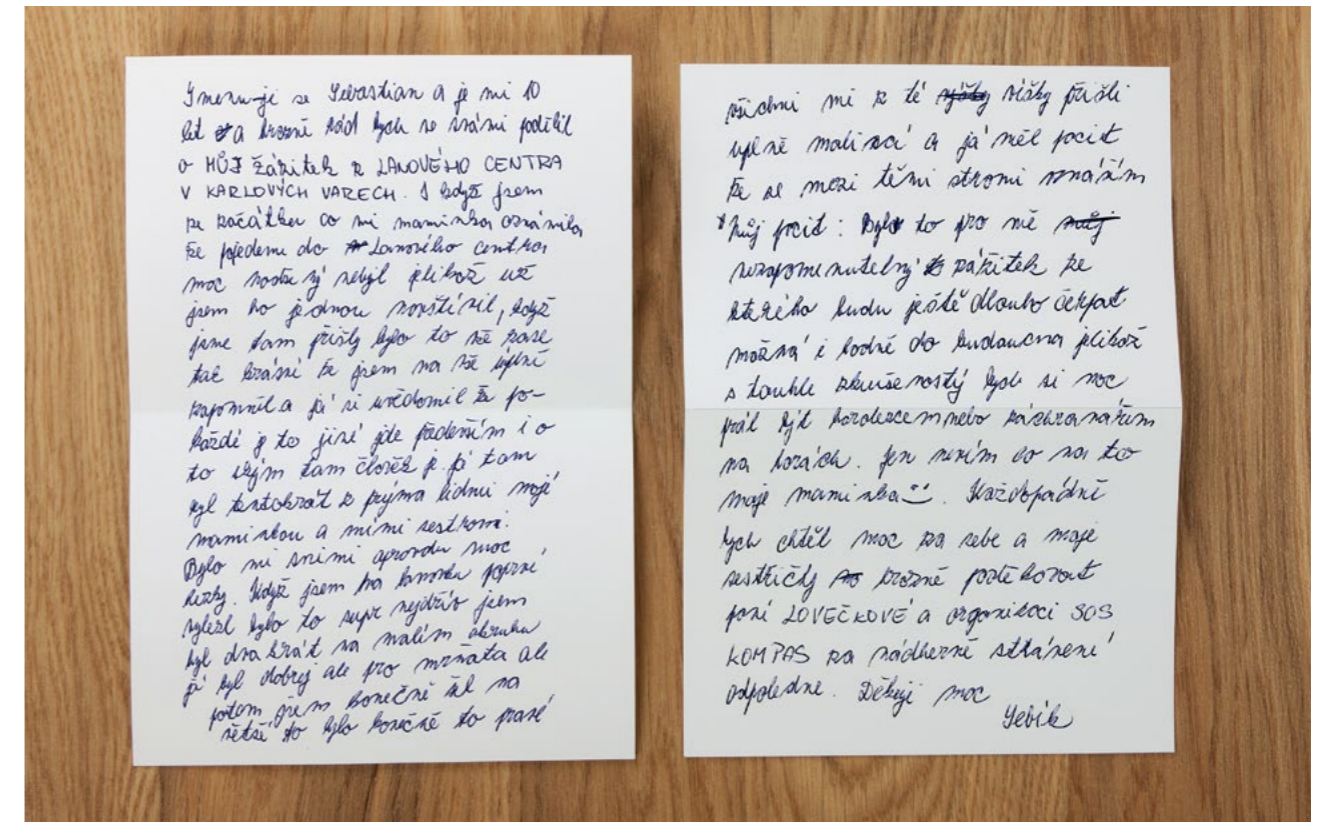 Jmenuji se Sebastian a je mi 10
let a hrozně rád bych se snámi podělil
o MŮJ žážitek z LANOVÉHO CENTRA
V KARLOVÝCH VARECH. I když jsem
ze začátku co mi maminka oznámila
že pojedeme do Lanového centra
moc nebyl jelikož už
jsem ho jednou navštívil, když
jsme tam přišly bylo to zase
tak krásné že jsem na vše úplně
zapomněl a já si uvědomil že po-
každé je to jiné jde především i o
to ským tam člověk je já tam
byl tentokrát s prýma lidmi mojí
maminkou a mími sestrami.
Bylo mi snimi opravdu moc
hezky. Když jsem na lanovku poprvé
vylezl bylo to supr nejdřív jsem
byl dva krát na malím okruhu
já byl dobrej ale pro mrňata ale
potom jsem konečně šel na
větší to bylo konečně to pravé
všichni mi z té výšky přišli
uplně malincí a já měl pocit
že se mezi těmi stromi vznáším
Můj pocit : Bylo to pro mě
nezapomenutelný zážitek ze
kterého budu ještě dlouho čerpat
možná i hodně do budoucna jelikož
s touhle zkušeností bych si moc
přál být horolezcem nebo záchranářem
na horách. Jen nevím co na to
moje maminka. Každopádně
bych chtěl moc za sebe a moje
sestřičky hrozně poděkovat
paní LOVEČKOVÉ a organizaci SOS
KOMPAS za nádherně strávené
odpoledne. Děkuji moc
Sebík